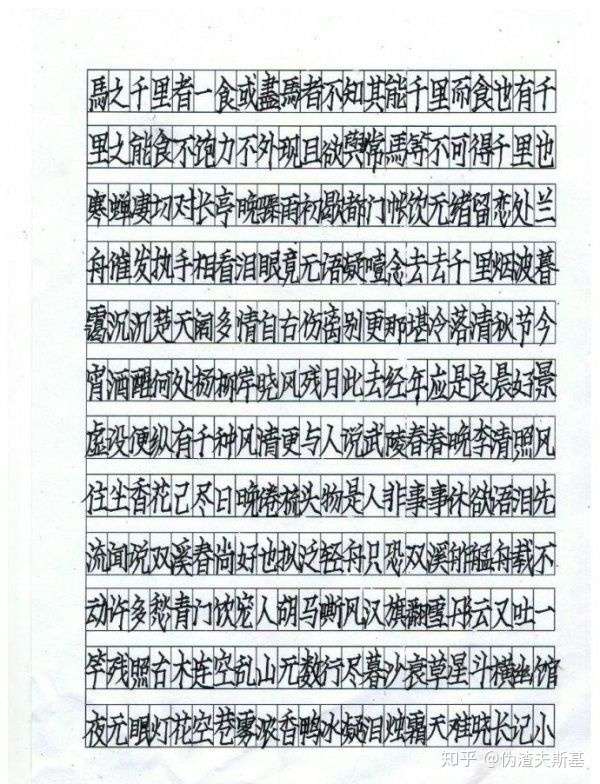 馬之千里者一食或盡馬者不知其能千里而食也有千
里之能食不饱力不外现且欲與常馬等不可得千里也
寒蝉凄切对长亭晚骤雨初歇都门帐饮无绪留恋处兰
舟催发执手相看泪眼竟无语凝噎念去去千里烟波暮
霭沉沉楚天阔多情自古伤离别更那堪冷落清秋节今
宵酒醒何处杨柳岸晓风残月此去经年应是良晨好景
虚设便纵有千种风清更与人说武陵春春晚李清照风
往尘香花已尽日晚倦梳头物是人非事事休欲语泪先
流闻说双溪春尚好也拟泛轻舟只恐双溪舴艋舟载不
动许多愁青门饮宠人胡马嘶风汉旗翻雪彤云又吐一
竿残照古木连空乱山无数行尽暮沙衰草星斗横幽馆
夜无眠灯花空雾浓香鸭冰凝泪烛霜天难晓长记小
知乎 @伪渣夫斯基